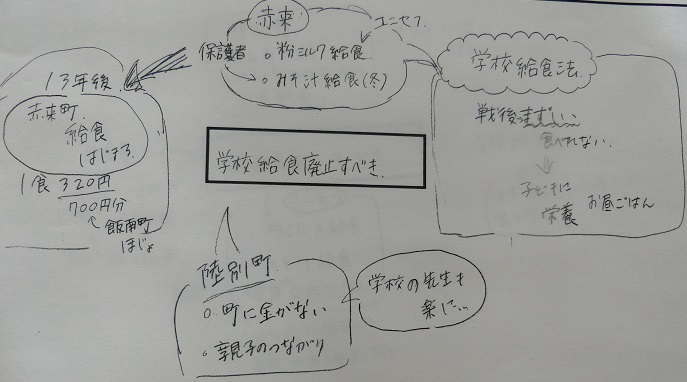 赤来
ユニセフ
保護者
○粉ミルク給食
→○みそ汁給食(冬)
学校給食法
戦後まずしい
食べれない
↓
子どもに
栄養 お昼ごはん
13年後
赤来町
給食
はじまる
1食 320円
700円分
飯南町
ほじょ
学校給食廃止すべき
陸別町
○町に金がない
○親子のつながり
学校の先生も
楽に…